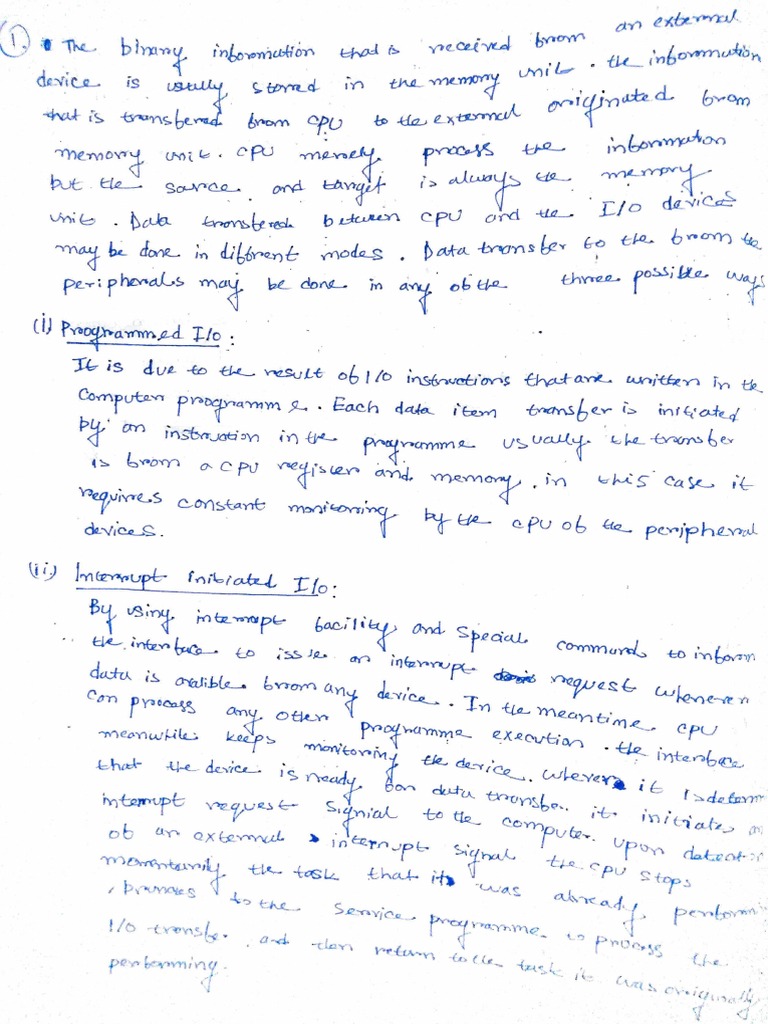 1. The binary information that is received from an external
device is usually stored in the memory unit. the information
that is transfered from CPU to the external originated from
memory unit. CPU merely process the information
but the source and target is always the memory
unit. Data transfered between CPU and the I/O devices
may be done in diffrent modes. Data transfer to the from the
peripherals may be done in any of the three possible ways
(i) Programmed I/o:
It is due to the result of I/o instructions that are written in the
Computer programme. Each data item transfer is initiated
by an instruction in the programme usually the transfer
is from a CPU register and memory. in this case it
requires constant monitoring by the CPU of the peripheral
devices.
(ii) Interrupt initiated I/o:
By using interrupt facility and special commands to inform
the interface to issue an interrupt request whenever
data is avalible from any device. In the meantime CPU
can process any other programme execution. the interface
meanwhile keeps monitoring the device. whenever it is determ
that the device is ready for data transfer it initiates an
interrupt request signial to the computer. upon detection
of an external interrupt signal the CPU stops
momentarily the task that it was already performin
, branches to the service programme to process the
I/o transfer, and then return to the task it was originally
performing.